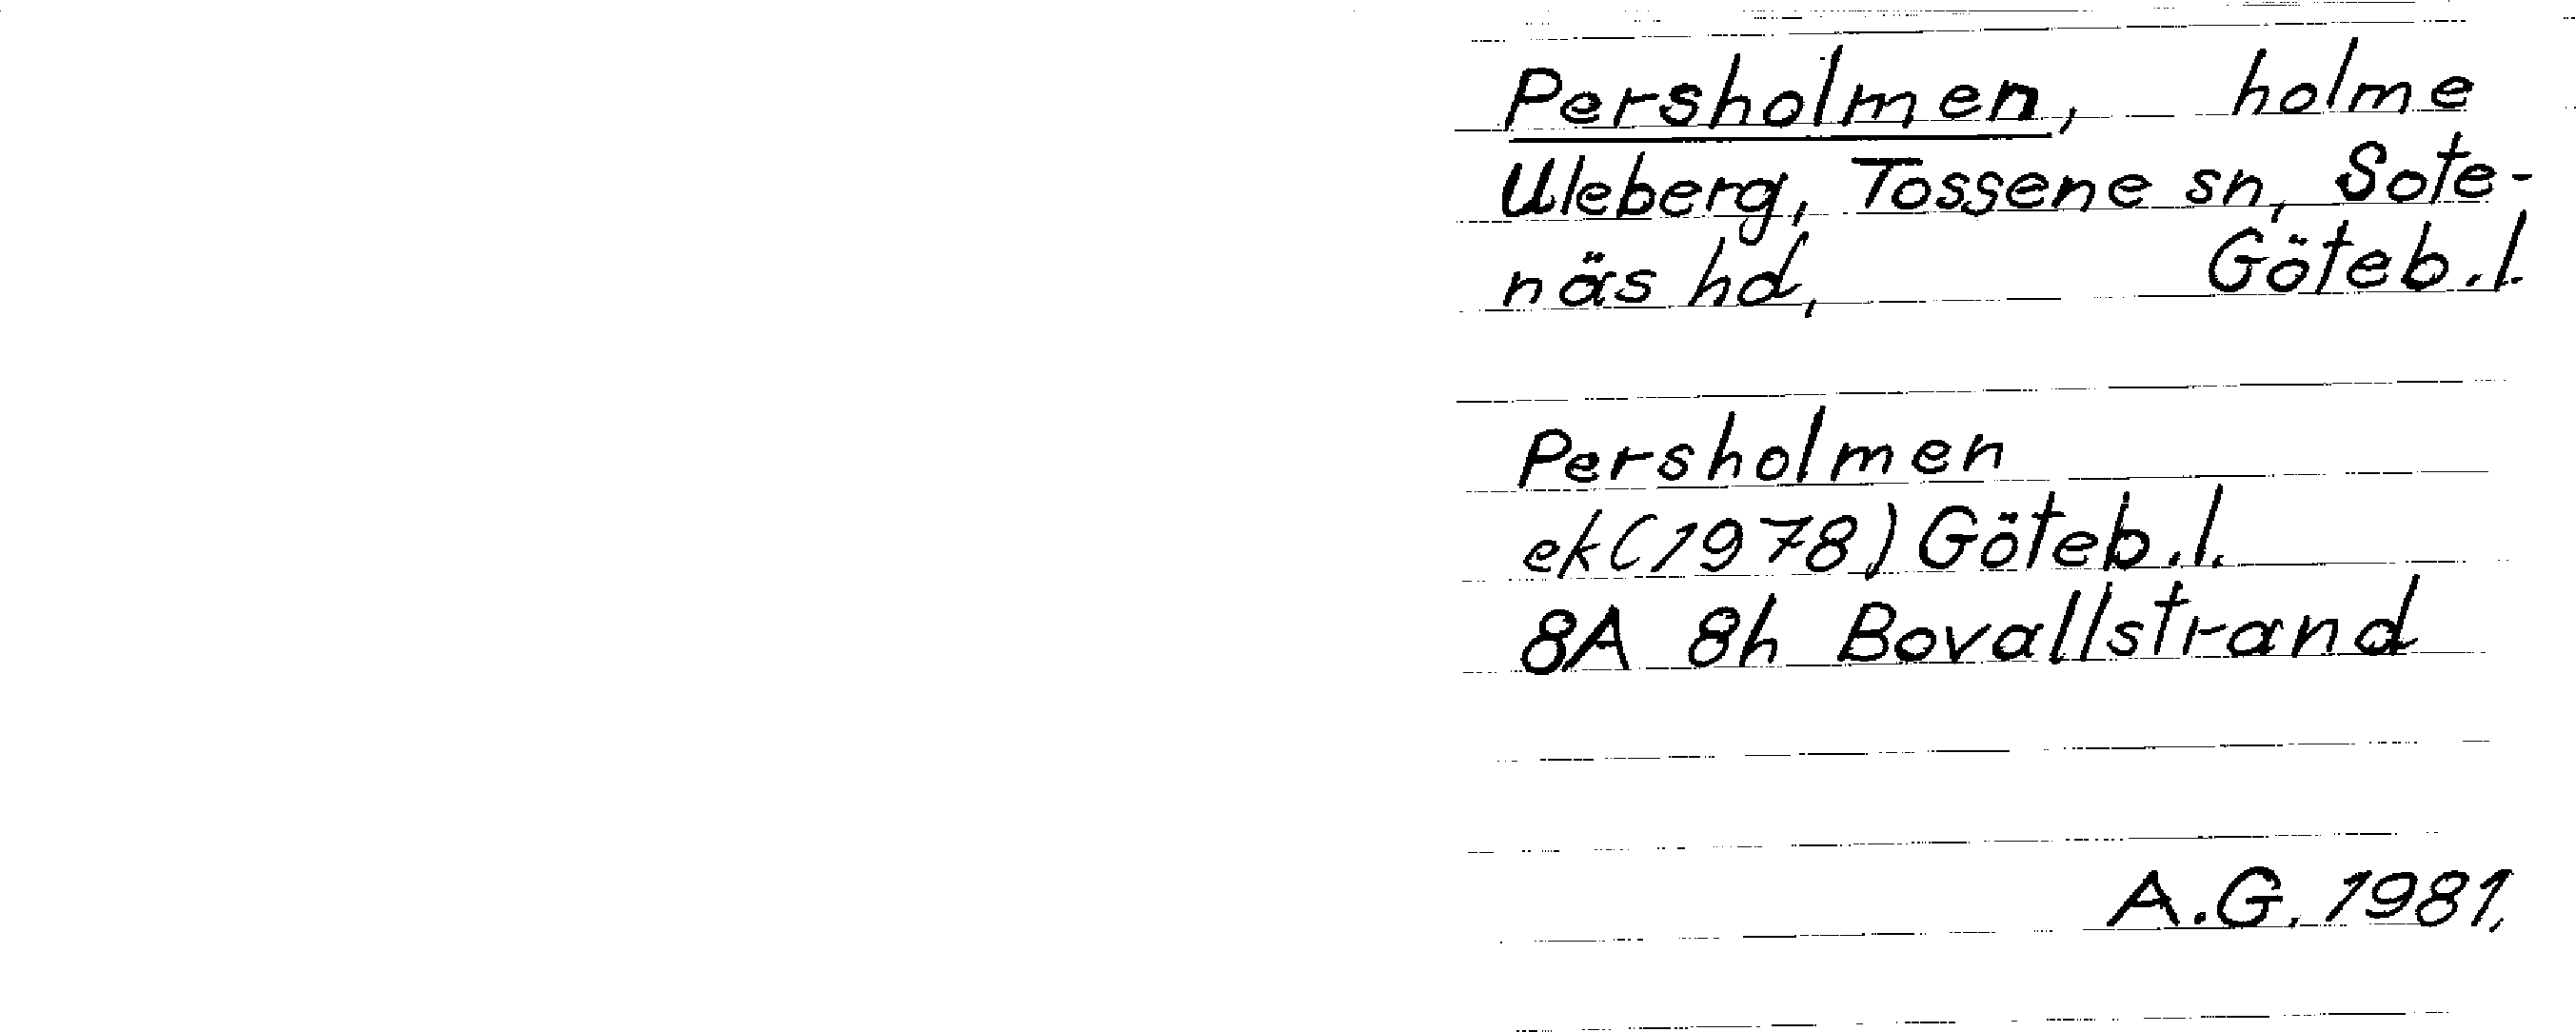 Persholmen, holme
Uleberg, Tossene sn, Sote-
näs hd, Göteb.l.
Persholmen
ek (1978) Göteb.l.
8A 8h Bovallstrand
A.G. 1981.